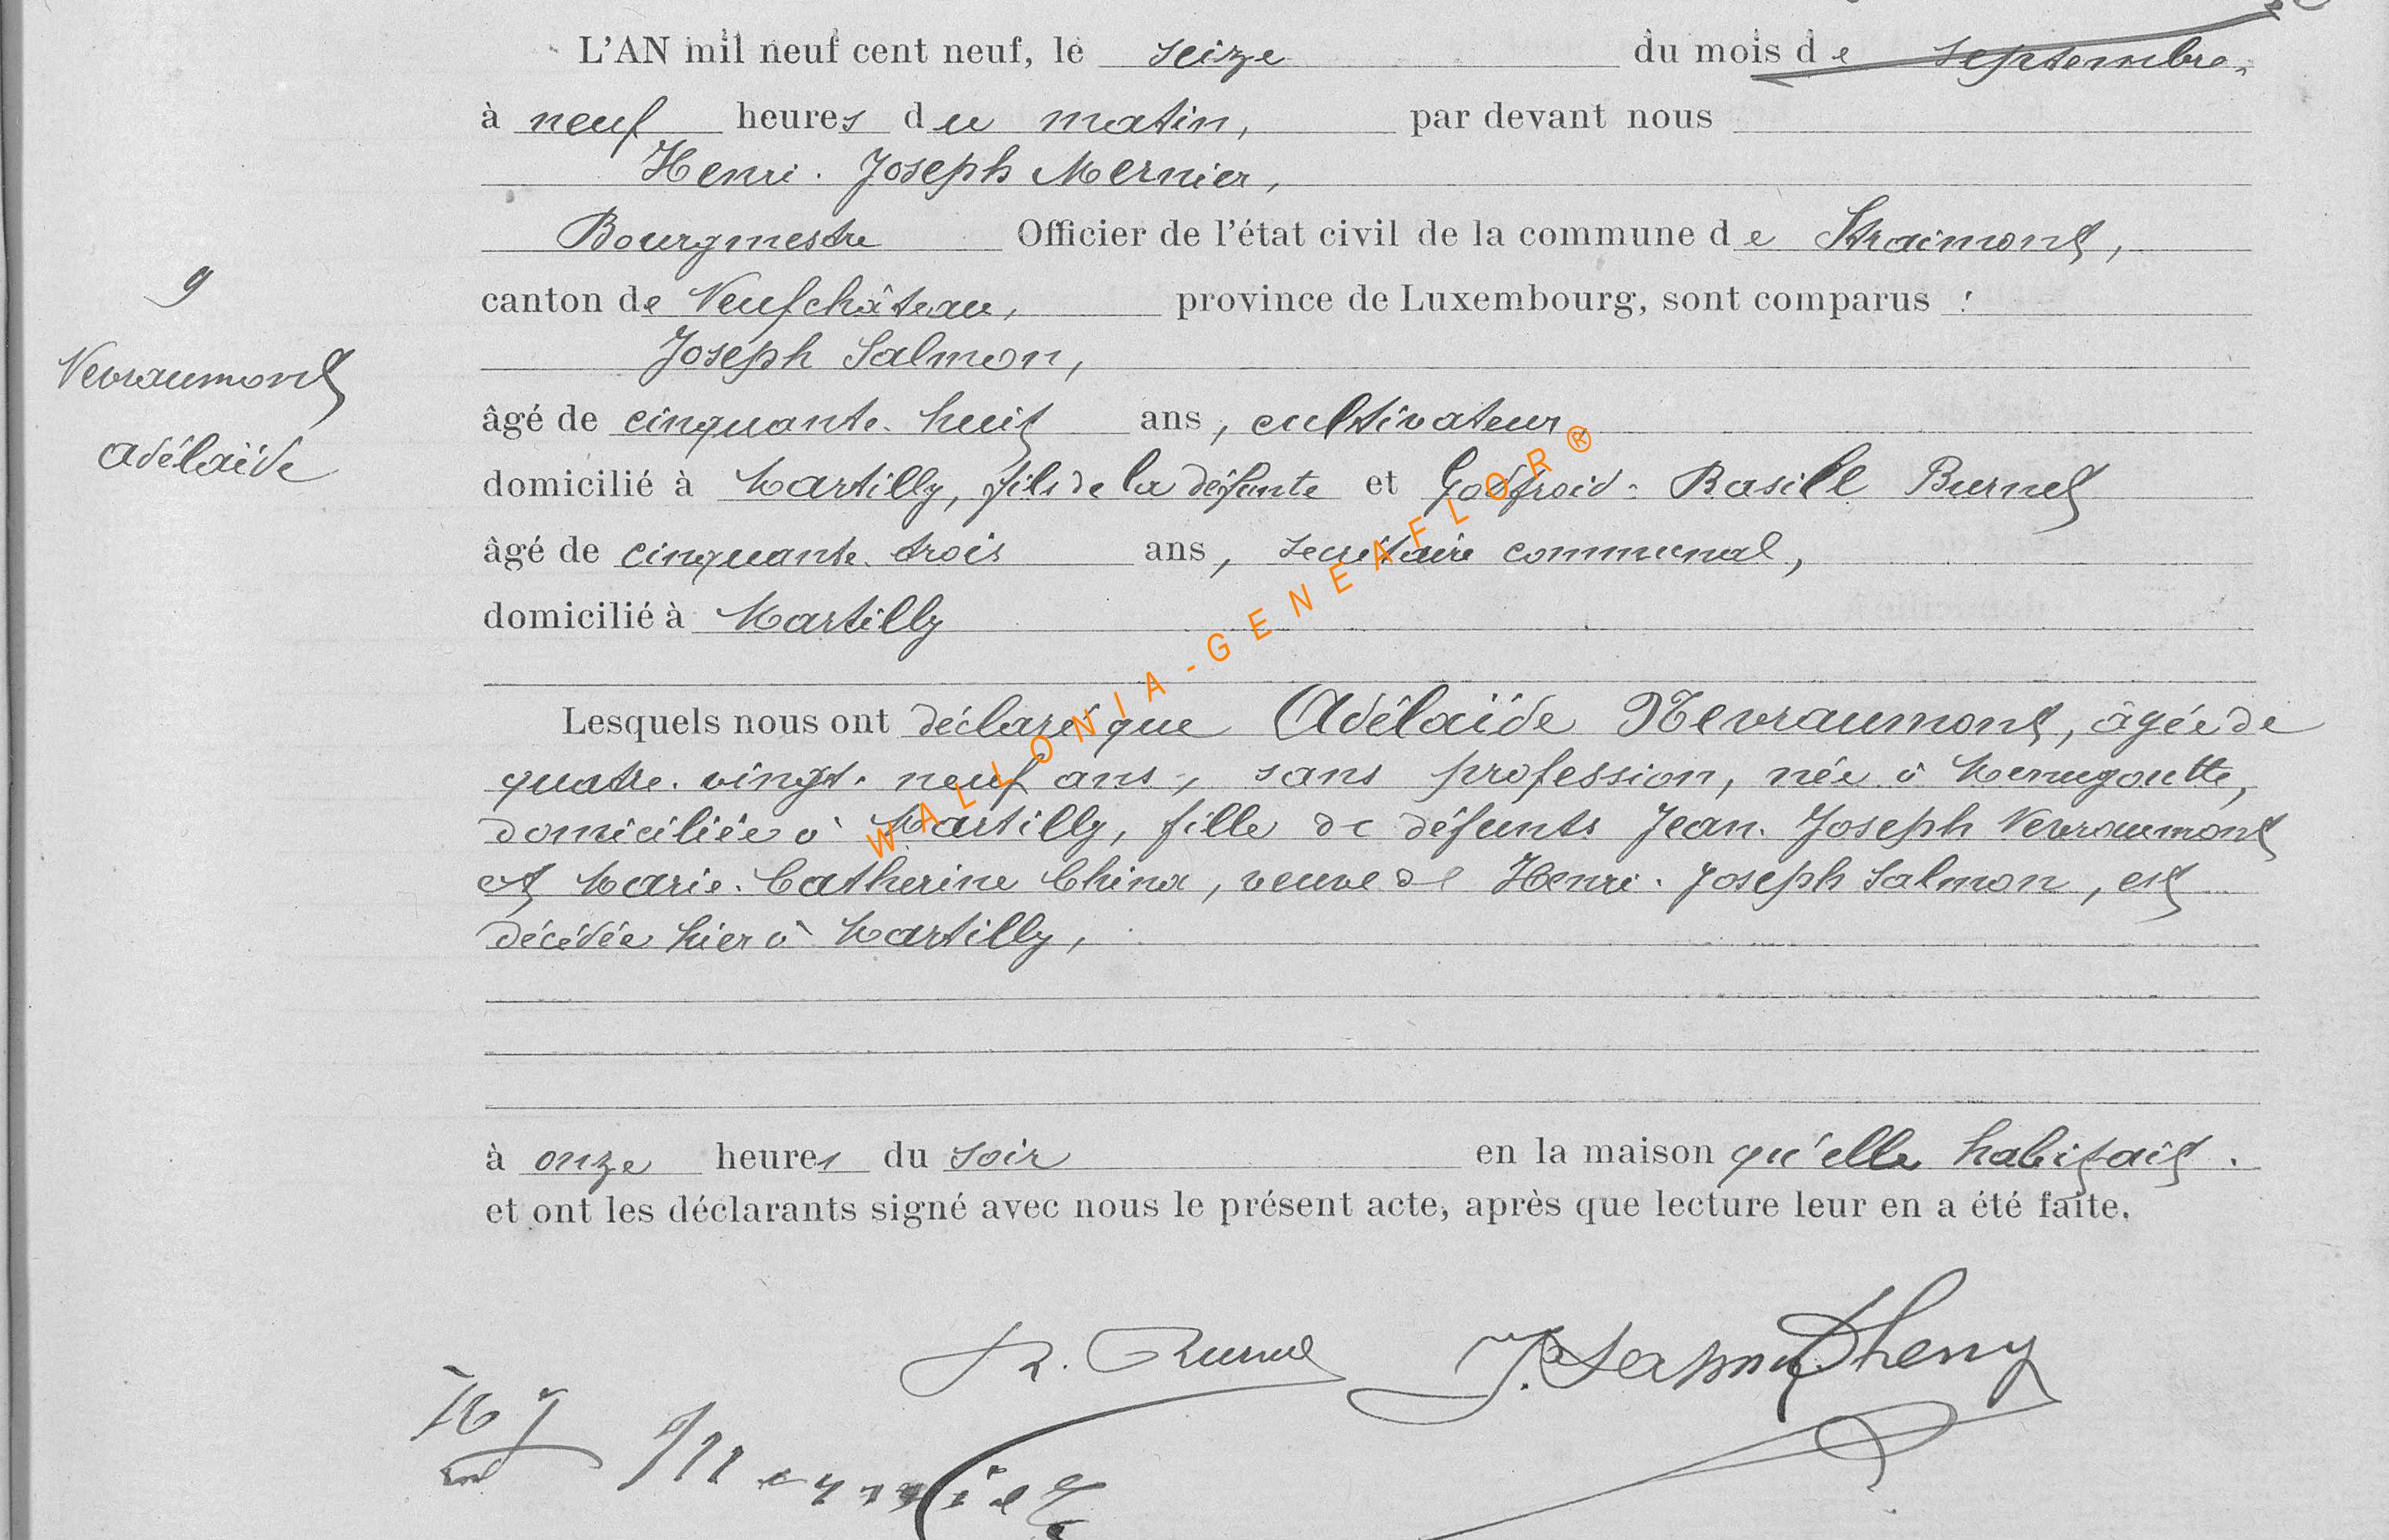 L'AN mil neuf cent neuf, le seize du mois de septembre,
à neuf heures du matin, par devant nous
Henri-Joseph Mernier,
Bourgmestre Officier de l'état civil de la commune de Straimont,
9
canton de Neufchâteau, province de Luxembourg, sont comparus :
Joseph Salmon,
Nevraumont
âgé de cinquante-huit ans, cultivateur
Adélaïde
domicilié à Martilly, fils de la défunte et Godfroid-Basile Burnel
âgé de cinquante-trois ans, secrétaire communal,
domicilié à Martilly
WALLONIA-GENEAFLOR®
Lesquels nous ont déclaré que Adélaïde Nevraumont, âgée de
quatre-vingt-neuf ans, sans profession, née à Menugoutte,
domiciliée à Martilly, fille de défunts Jean-Joseph Nevraumont
et Marie-Catherine China, veuve de Henri-Joseph Salmon, est
décédée hier à Martilly,
à onze heures du soir en la maison qu'elle habitait.
et ont les déclarants signé avec nous le présent acte, après que lecture leur en a été faite.